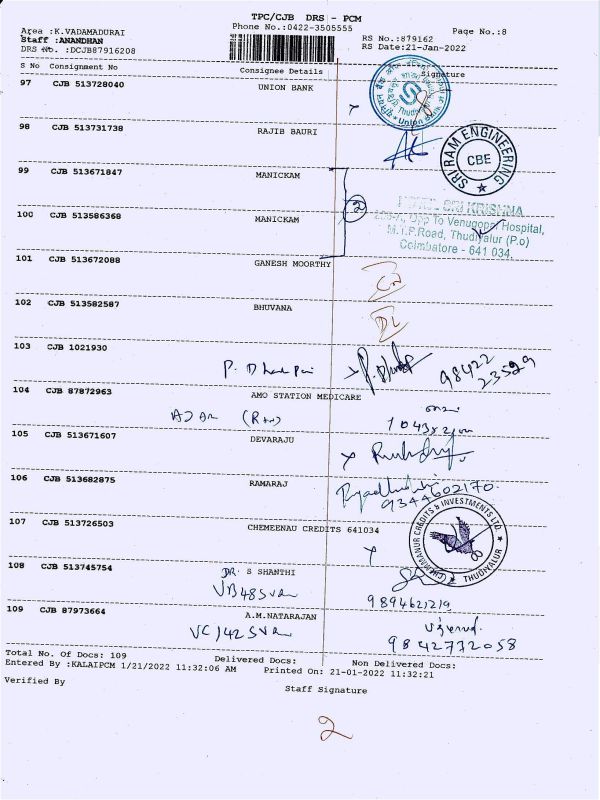 TPC/CJB DRS - PCM
Area :K.VADAMADURAI
Phone No.:0422-3505555
Page No.:8
Staff :ANANDHAN
RS No.:879162
DRS No. :DCJB87916208
RS Date:21-Jan-2022
S No Consignment No Consignee Details Signature
97 CJB 513728040 UNION BANK
Union Bank
98 CJB 513731738 RAJIB BAURI
SRI RAM ENGINEERING
CBE
99 CJB 513671847 MANICKAM
2
100 CJB 513586368 MANICKAM
SRI KRISHNA
Opp To Venugopal Hospital,
M.T.P.Road, Thudiyalur (P.o)
Coimbatore - 641 034.
101 CJB 513672088 GANESH MOORTHY
102 CJB 513582587 BHUVANA
DL
103 CJB 1021930
98422
23529
104 CJB 87872963 AMO STATION MEDICARE
105 CJB 513671607 DEVARAJU
106 CJB 513682875 RAMARAJ
9344602170
107 CJB 513726503 CHEMEENAU CREDITS 641034
CHEMMANUR CREDITS & INVESTMENTS LTD.
THUDIYALUR
108 CJB 513745754 DR. S SHANTHI
9894621219
109 CJB 87973664 A.M.NATARAJAN
9842772058
Total No. Of Docs: 109 Delivered Docs: Non Delivered Docs:
Entered By :KALAIPCM 1/21/2022 11:32:06 AM Printed On: 21-01-2022 11:32:21
Verified By
Staff Signature
2